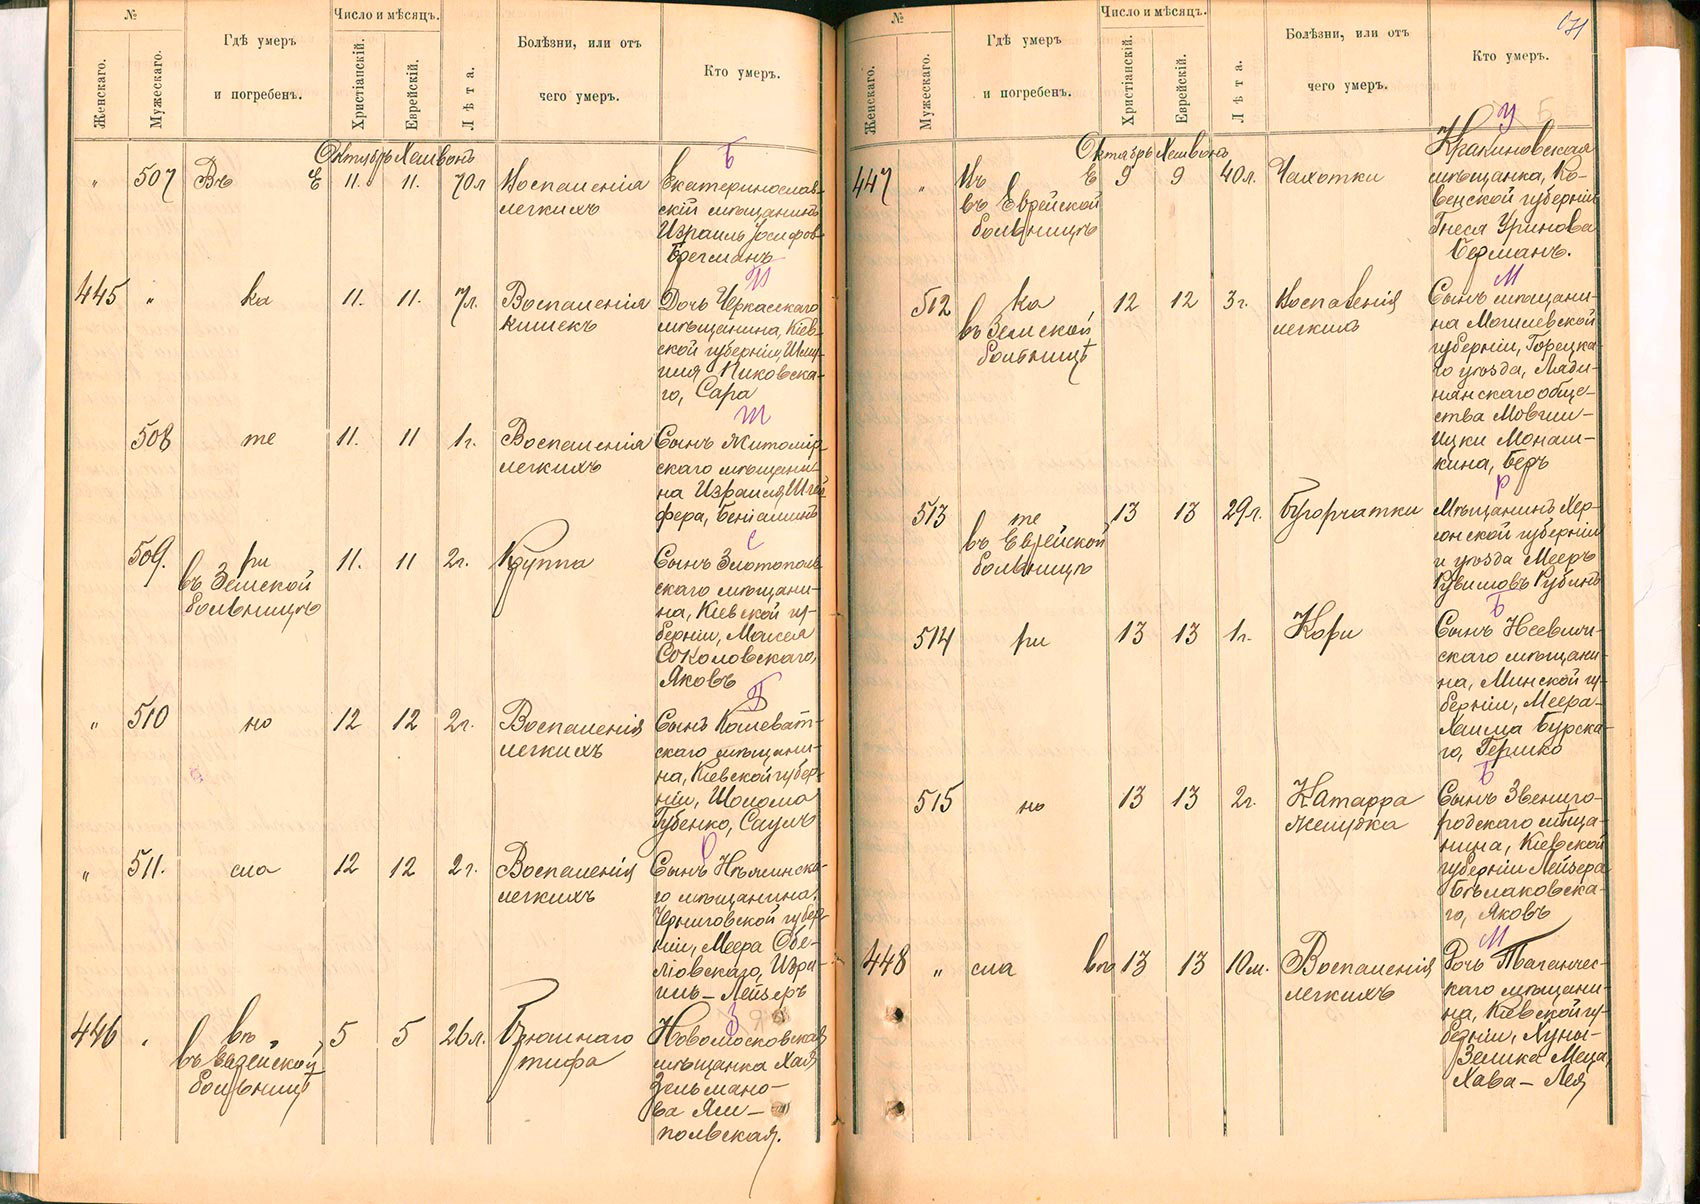 №
Женскаго.
Мужескаго.
Гдѣ умеръ
и погребенъ.
Число и мѣсяцъ.
Христіанскій.
Еврейскій.
Лѣта.
Болѣзни, или отъ
чего умеръ.
Кто умеръ.
Октябрь Хешвонъ
Б
„ 507 Въ Е 11. 11. 70л Воспаленія
легкихъ
Екатеринослав-
скій мѣщанинъ
Израиль Іосифовъ
Брегманъ
П
445 „ ка 11. 11. 7л. Воспаленія
кишекъ
Дочь Черкасскаго
мѣщанина, Кіев-
ской губерніи, Шму-
лія Пиковска-
го, Сара
Ш
508 те 11. 11 1г. Воспаленія
легкихъ
Сынъ Житомір-
скаго мѣщани-
на Израиля
фера, Беніаминъ
С
509. ри
въ Земской
больницѣ
11. 11 2г. Круппа
Сынъ Златополь
скаго мѣщани-
на, Кіевской гу-
берніи, Моисея
Соколовскаго,
Яковъ
„ 510 но 12 12 2г. Воспаленія
легкихъ
Сынъ Кошеват-
скаго мѣщани-
на, Кіевской губер-
ніи, Шолома
Губенко, Саулъ
„ 511. сла 12 12 2г. Воспаленія
легкихъ
Сынъ Нѣжинска-
го мѣщанина,
Черниговской губер-
ніи, Меера Обе-
ліовскаго, Изра-
иль-Лейзеръ
З
446 вѣ
въ Еврейской
больницѣ
5 5 26л. Брюшнаго
тифа
Новомосковская
мѣщанка Хая
Зельмано-
ва Ям-
польская.
171
№
Женскаго.
Мужескаго.
Гдѣ умеръ
и погребенъ.
Число и мѣсяцъ.
Христіанскій.
Еврейскій.
Лѣта.
Болѣзни, или отъ
чего умеръ.
Кто умеръ.
Октябрь Хешвонъ
У
447 „ Въ Е
въ Еврейской
больницѣ
9 9 40л. Чахотки
Кракиновская
мѣщанка, Ко-
венской губерніи
Гнеся Уринова
Берманъ.
М
512 ка
въ Земской
больницѣ
12 12 3г. Воспаленія
легкихъ
Сынъ мѣщани-
на Могилевской
губерніи, Горецка-
го уѣзда, Ляди-
нянскаго обще-
ства Мовши-
Ицки Монаш-
кина, Беръ
Р
513 те
въ Еврейской
больницѣ
13 13 29л. Бугорчатки
Мѣщанинъ Хер-
сонской губерніи
и уѣзда Мееръ
Рувимовъ Рубинъ
Б
514 ри 13 13 1г. Кори
Сынъ Несвиж-
скаго мѣщани-
на, Минской гу-
берніи, Меера-
Хаима Бурска-
го, Гершко
Б
515 но 13 13 2г. Катарра
желудка
Сынъ Звениго-
родскаго мѣща-
нина, Кіевской
губерніи Лейзера
Бѣлаковска-
го, Яковъ
М
448 „ сла вѣ 13 13 10м. Воспаленія
легкихъ
Дочь Таганчес-
каго мѣщани-
на, Кіевской гу-
берніи, Хуны-
Зелика Меца,
Хава-Лея